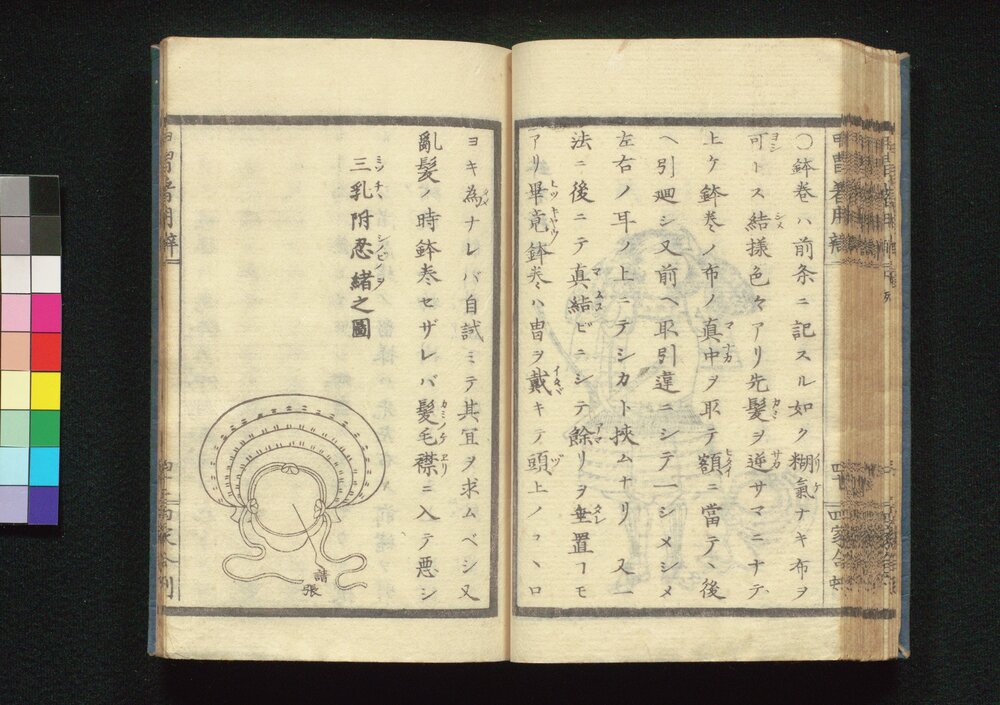 〇鉢巻ハ前条ニ記スル如ク糊氣ナキ布ヲ
可トス結様色々アリ先髮ヲ逆サマニナデ
上ケ鉢巻ノ布ノ真中ヲ取テ額ニ當テヽ後
ヘ引廻シ又前ヘ取引違ニシテ一シメシメ
左右ノ耳ノ上ニテシカト挾ムナリ又一
法ニ後ニテ真結ビニシテ餘リヲ垂置ヿモ
アリ畢竟鉢巻ハ冑ヲ戴キテ頭上ノコヽロ
ヨキ為ナレバ自試ミテ其冝ヲ求ムベシ又
亂髮ノ時鉢巻セザレバ髮毛襟ニ入テ悪シ
三乳附忍緒之圖
請張